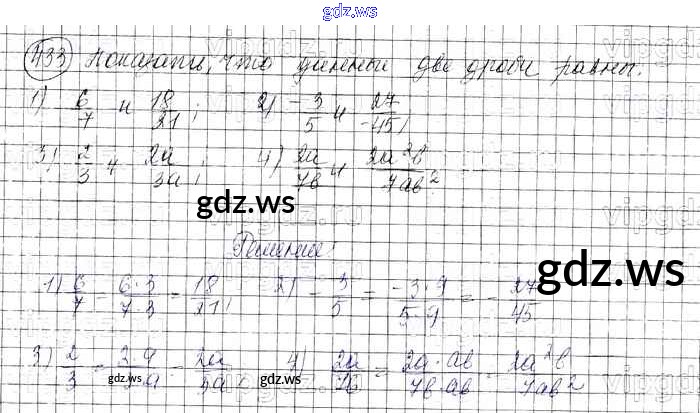 gdz.ws
433 Показать, что данные две дроби равны.
1) 6/7 и 18/21; 2) -3/5 и 27/-45;
3) 2/3 и 2a/3a; 4) 2a/7b и 2a²b/7ab²
gdz.ws
Решение:
gdz.ws
1) 6/7 = 6·3/7·3 = 18/21; 2) -3/5 = -3·9/5·9 = -27/45
3) 2/3 = 2·a/3·a = 2a/3a; 4) 2a/7b = 2a·ab/7b·ab = 2a²b/7ab²
gdz.ws
gdz.ws